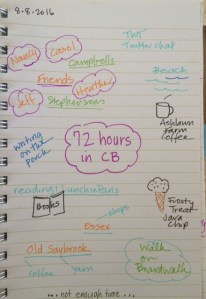 8.8.2016
TWT
Twitter chat
Nancy
Carol
Campbells
Friends
Heather
Beach
Jeff
Stephensons
writing
on the
porch
72 hours
in CB
Ashlawn
Farm
Coffee
reading
Books
Essex
shops
Frosty
Treat
Java
Chip
Old Saybrook
coffee
Yarn
Walk
on
Boardwalk
... not enough time ...